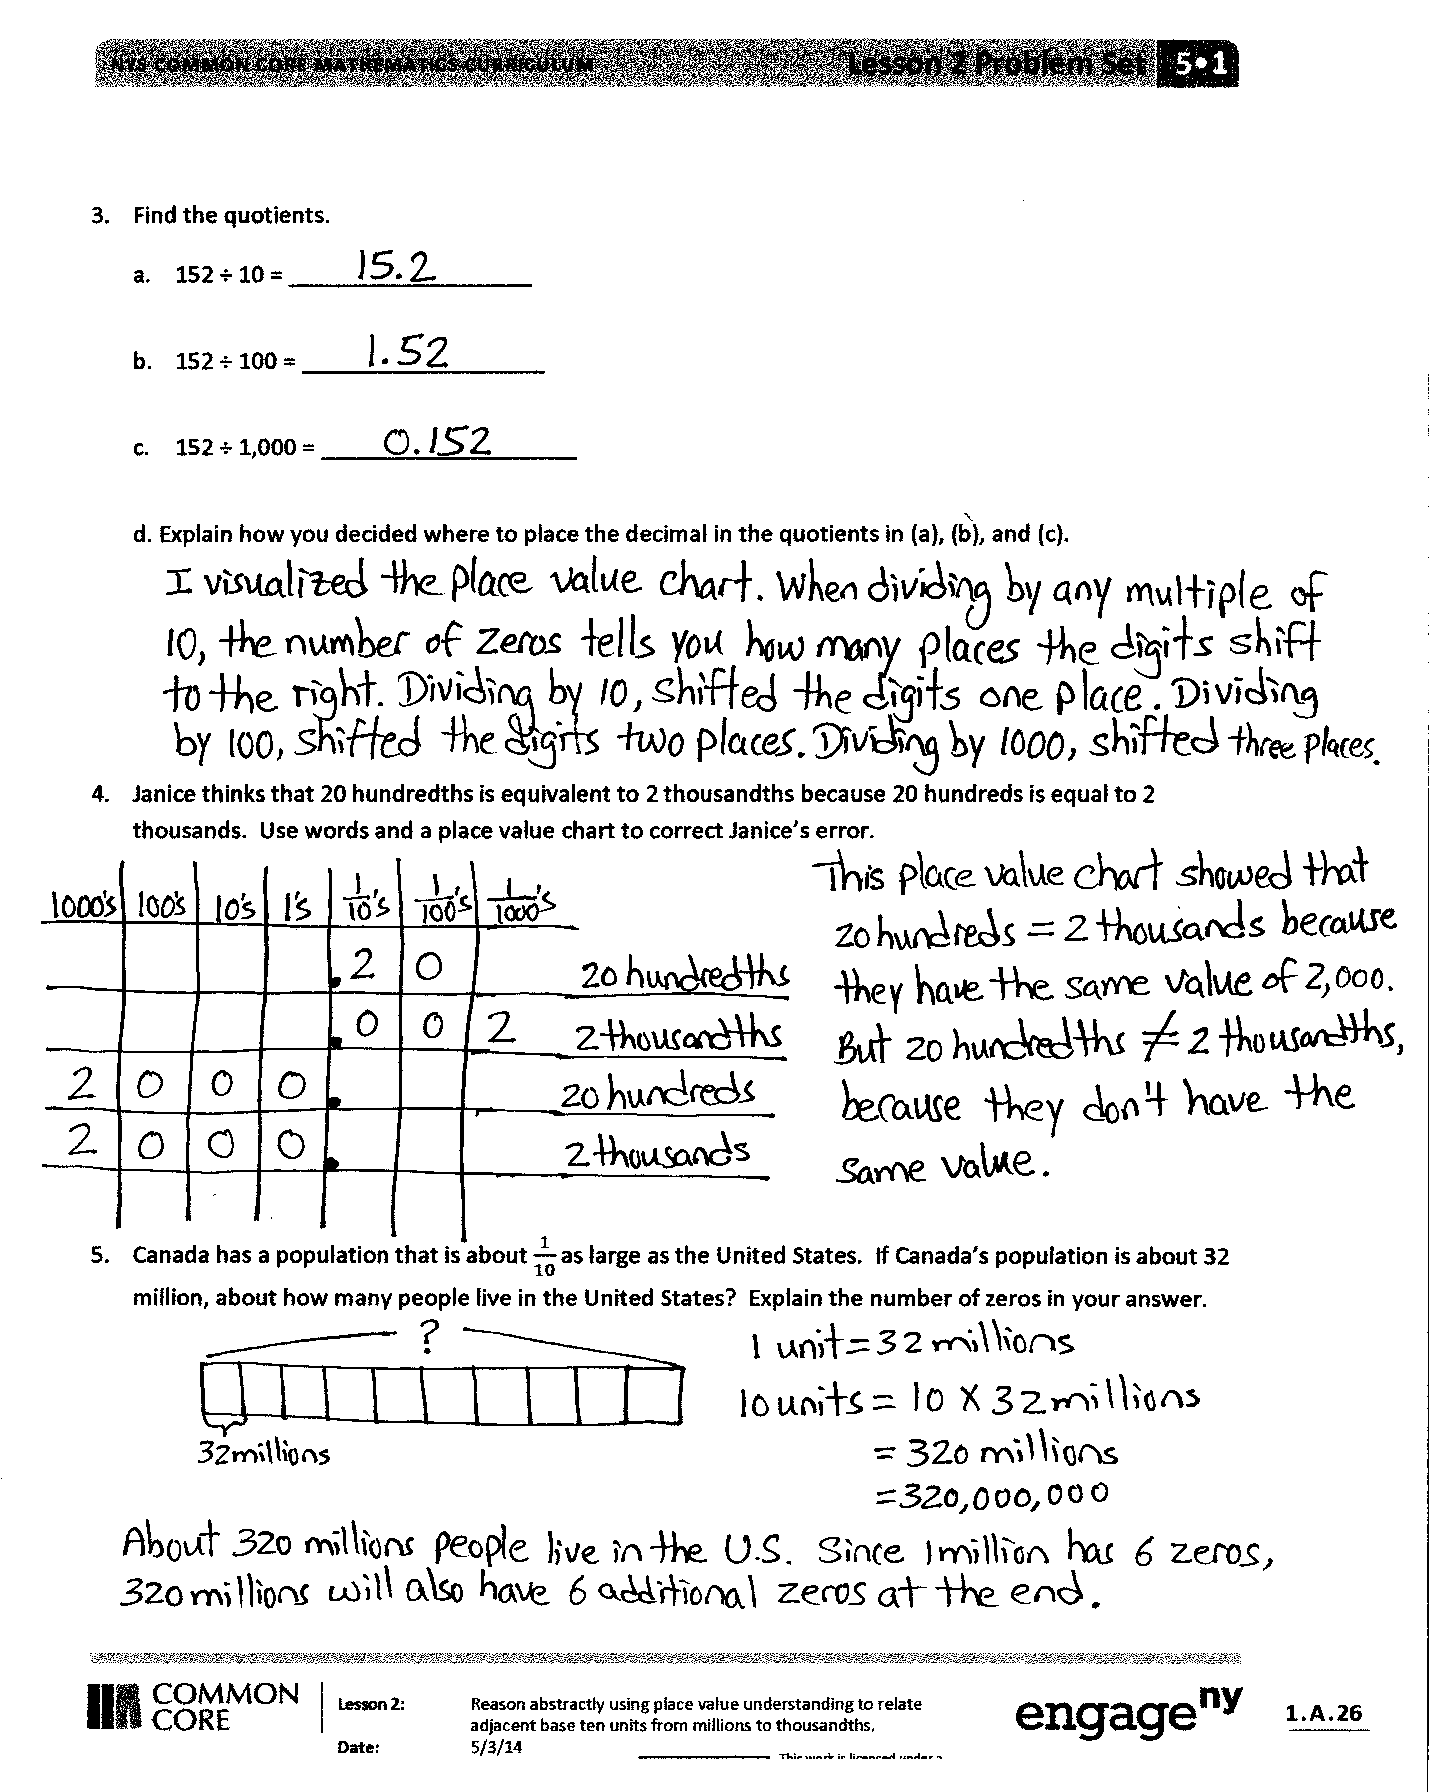 NYS COMMON CORE MATHEMATICS CURRICULUM Lesson 2 Problem Set 5•1
3. Find the quotients.
a. 152 ÷ 10 = 15.2
b. 152 ÷ 100 = 1.52
c. 152 ÷ 1,000 = 0.152
d. Explain how you decided where to place the decimal in the quotients in (a), (b), and (c).
I visualized the place value chart. When dividing by any multiple of
10, the number of zeros tells you how many places the digits shift
to the right. Dividing by 10, shifted the digits one place. Dividing
by 100, shifted the digits two places. Dividing by 1000, shifted three places.
4. Janice thinks that 20 hundredths is equivalent to 2 thousandths because 20 hundreds is equal to 2
thousands. Use words and a place value chart to correct Janice's error.
1000's 100's 10's 1's 1/10's 1/100's 1/1000's
. 2 0 20 hundredths
. 0 0 2 2 thousandths
2 0 0 0 . 20 hundreds
2 0 0 0 . 2 thousands
This place value chart showed that
20 hundreds = 2 thousands because
they have the same value of 2,000.
But 20 hundredths ≠ 2 thousandths,
because they don't have the
same value.
5. Canada has a population that is about 1/10 as large as the United States. If Canada's population is about 32
million, about how many people live in the United States? Explain the number of zeros in your answer.
?
32 millions
1 unit = 32 millions
10 units = 10 X 32 millions
= 320 millions
= 320,000,000
About 320 millions people live in the U.S. Since 1 million has 6 zeros,
320 millions will also have 6 additional zeros at the end.
COMMON
CORE
Lesson 2: Reason abstractly using place value understanding to relate
adjacent base ten units from millions to thousandths.
Date: 5/3/14
engageny
1.A.26
This work is licensed under a